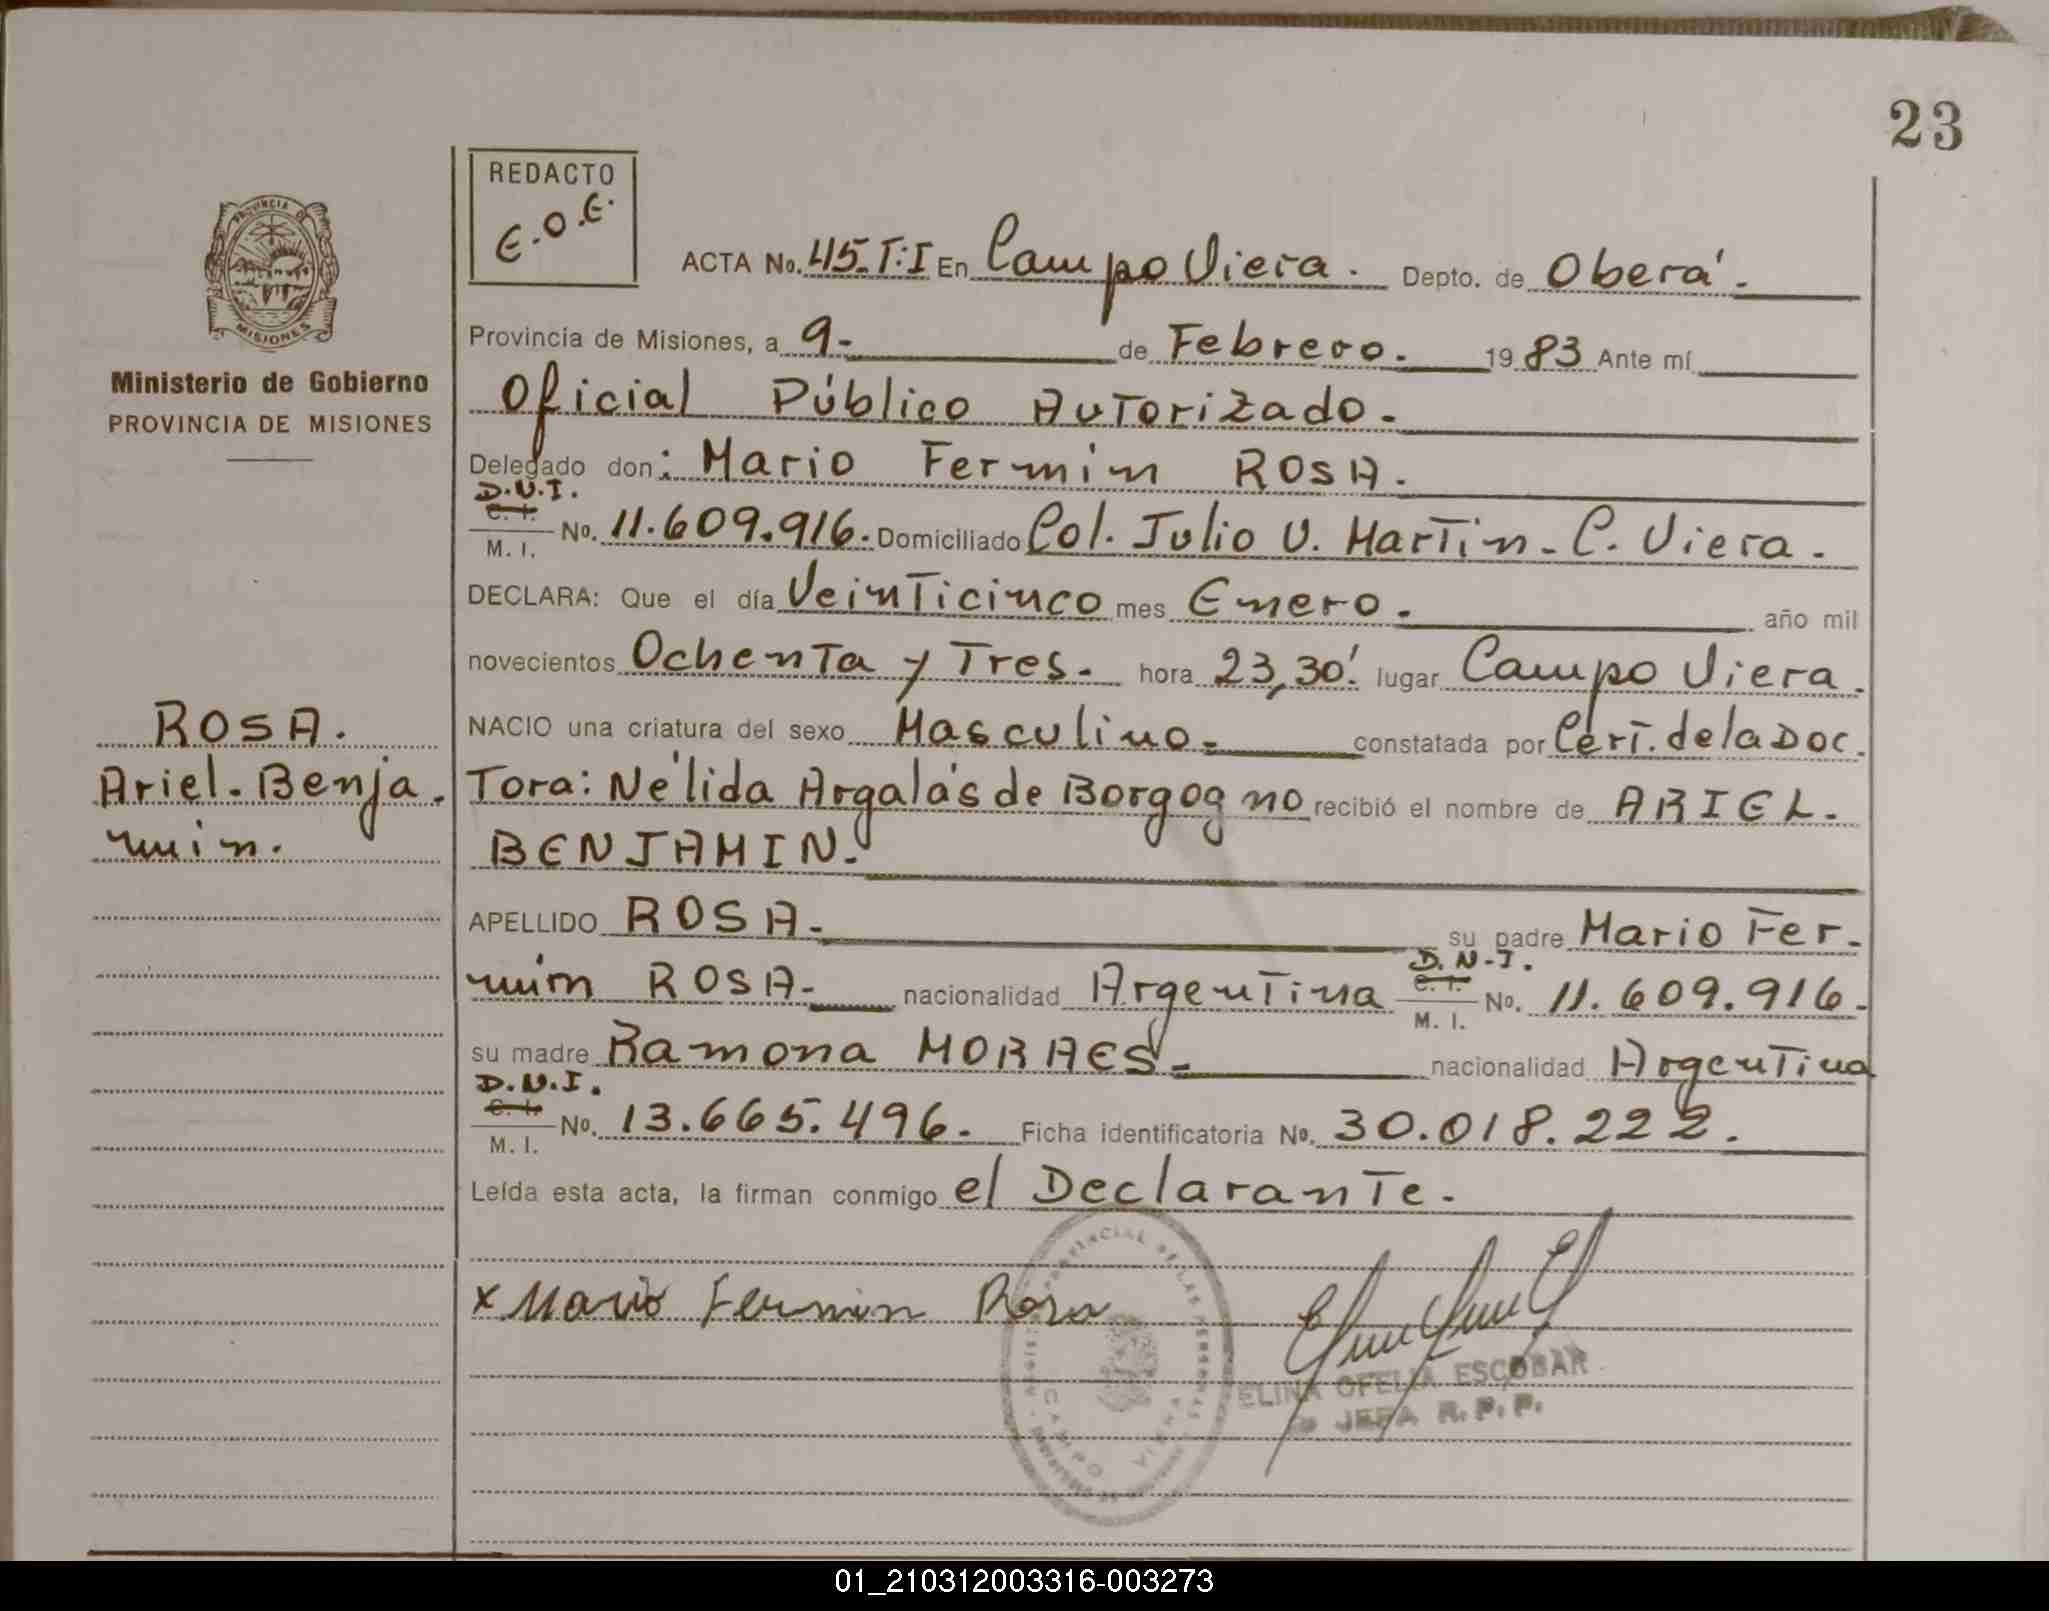 23
REDACTO
E.O.E.
PROVINCIA DE
MISIONES
Ministerio de Gobierno
PROVINCIA DE MISIONES
ACTA No. 45.T:I En Campo Viera. Depto. de Oberá.
Provincia de Misiones, a 9.- de Febrero. 1983 Ante mí
Oficial Público Autorizado.
Delegado don: Mario Fermin ROSA.
D.N.I.
C. I.
M. I. No. 11.609.916. Domiciliado Col. Julio U. Martin - C. Viera.
DECLARA: Que el día Veinticinco mes Enero. año mil
novecientos Ochenta y Tres. hora 23,30'. lugar Campo Viera.
NACIO una criatura del sexo Masculino. constatada por Cert. de la Doc.
Tora: Nélida Argalás de Borgogno recibió el nombre de ARIEL.
BENJAMIN.
APELLIDO ROSA. su padre Mario Fer-
min ROSA. nacionalidad Argentina D.N.I. C. I. M. I. No. 11.609.916.
su madre Ramona MORAES. nacionalidad Argentina
D.N.I.
C. I.
M. I. No. 13.665.496. Ficha identificatoria No. 30.018.222.
Leída esta acta, la firman conmigo el Declarante.
ROSA.
Ariel. Benja.
min.
x Mario Fermin Rosa
CAMPO VIERA
ELINA OFELIA ESCOBAR
JEFA R.P.P.
01_210312003316-003273